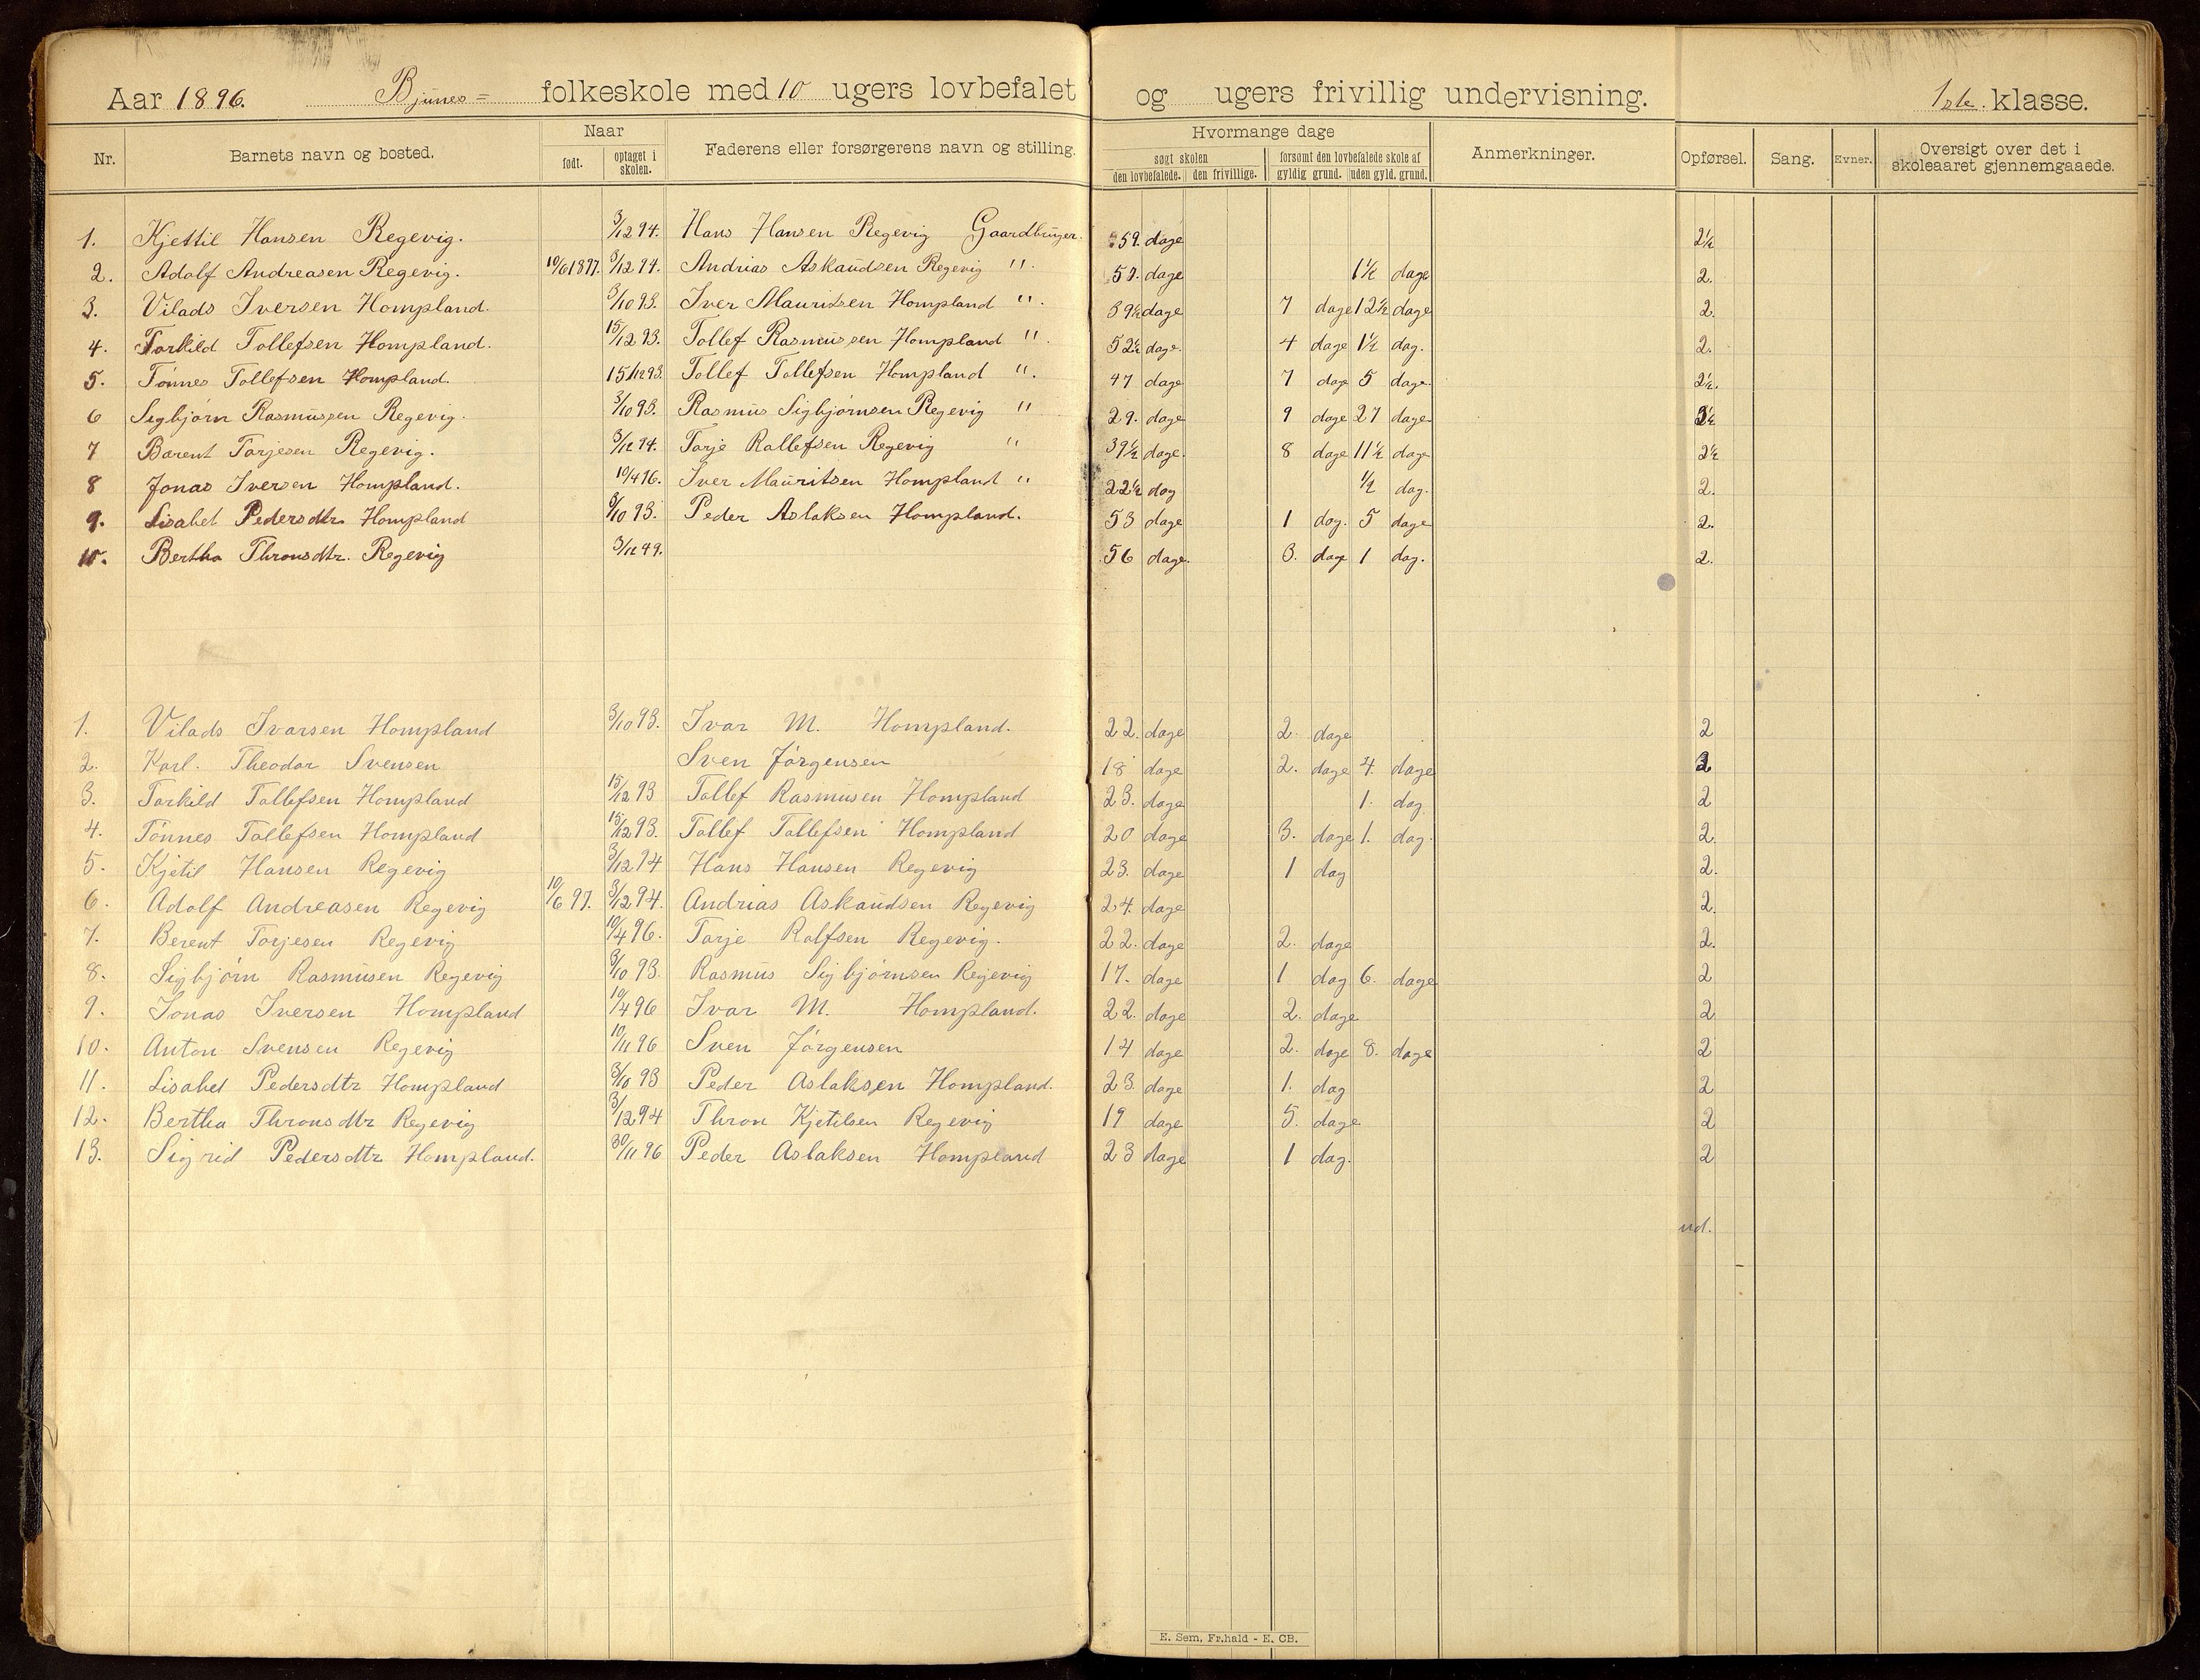 Aar 1896. Bjunes= folkeskole med 10 ugers lovbefalet og ugers frivillig undervisning. 1ste. klasse.
Naar Hvormange dage
Nr. Barnets navn og bosted. født. optaget i skolen. Faderens eller forsørgerens navn og stilling. søgt skolen forsømt den lovbefalede skole af Anmerkninger. Opførsel. Sang. Evner. Oversigt over det i skoleaaret gjennemgaaede.
den lovbefalede. den frivillige. gyldig grund. uden gyld. grund.
1. Kjettil Hansen Regevig. 3/12 94. Hans Hansen Regevig Gaardbruger. 59. dage 2½
2. Adolf Andreasen Regevig. 10/6 1897. 3/12 94. Andrias Askaudsen Regevig " . dage 1½ dage 2.
3. Vilads Iversen Hompland. 3/10 93. Iver Mauritsen Hompland " . 39½ dage 7 dage 12½ dage 2.
4. Torkild Tollefsen Hompland. 15/12 93. Tollef Rasmussen Hompland " . 52½ dage. 4 dage 1½ dag. 2.
5. Tönnes Tollefsen Hompland. 15/12 93. Tollef Tollefsen Hompland " . 47 dage 7 dage 5 dage. 2½.
6 Sigbjörn Rasmussen Regevig. 3/10 93. Rasmus Sigbjörnsen Regevig " 29. dage 9 dage 27 dage
7 Barent Tarjesen Regevig. 3/12 94. Tarje Rollefsen Regevig " 39½ dage. 8 dage 11½ dage 2½
8 Jonas Iversen Hompland. 10/4 96. Iver Mauritsen Hompland " 22½ dag ½ dag. 2.
9. Lisabet Pedersdtr. Hompland 3/10 93. Peder Aslaksen Hompland. 53 dage 1 dag. 5 dage 2.
10. Bertha Thronsdtr. Regevig 56 dage. 3. dage 1 dag. 2.
1. Vilads Ivarsen Hompland 3/10 93. Ivar M. Hompland. 22. dage 2. dage 2
2. Karl. Theodor Svensen Sven Jörgensen 18 dage 2. dage 4. dage
3. Torkild Tollefsen Hompland 15/12 93 Tollef Rasmusen Hompland 23. dage 1. dag 2
4. Tönnes Tollefsen Hompland 15/12 93. Tollef Tollefsen Hompland 20 dage 3. dage 1. dag. 2.
5. Kjetil Hansen Regevig 3/12 94 Hans Hansen Regevig 23. dage 1 dag 2.
6. Adolf Andreasen Regevig 10/6 97. 3/12 94. Andrias Askaudsen Regevig 24. dage 2.
7. Berent Torjesen Regevig 10/4 96. Tarje Rolfsen Regevig. 22. dage 2. dage 2.
8. Sigbjörn Rasmusen Regevig 3/10 93. Rasmus Sigbjörnsen Regevig 17. dage 1 dag 6. dage 2
9. Jonas Iversen Hompland 10/4 96 Ivar M. Hompland. 22. dage 2. dage 2
10. Anton Svensen Regevig 10/11 96 Sven Jörgensen 14 dage 2. dage 8. dage 2
11. Lisabet Pedersdtr Hompland 3/10 93 Peder Aslaksen Hompland. 23. dage 1. dag 2
12. Bertha Thronsdtr Regevig 3/12 94 Thron Kjetilsen Regevig 19 dage 5. dage 2
13. Sigrid Pedersdtr Hompland. 30/11 96 Peder Aslaksen Hompland 23 dage 1 dag. 2
ud.
E. Sem, Fr.hald - E. CB.